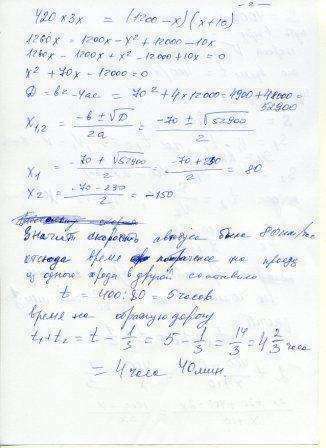 - 2 -
420 x 3x = (1200 - x)(x + 10)
1260x = 1200x - x² + 12000 - 10x
1260x - 1200x + x² - 12000 + 10x = 0
x² + 70x - 12000 = 0
D = b² - 4ac = 70² + 4 x 12000 = 4900 + 48000 =
52900
x1,2 = -b ± √D / 2a = -70 ± √52900 / 2
x1 = -70 + √52900 / 2 = -70 + 230 / 2 = 80
x2 = -70 - 230 / 2 = -150
Значит скорость автобуса была 80 км/час
отсюда время потраченое на проезд
из одного города в другой составило
t = 400 : 80 = 5 часов
время на обратную дорогу
t1 + t2 = t - 1/3 = 5 - 1/3 = 14/3 = 4 2/3 часа
= 4 часа 40 мин.